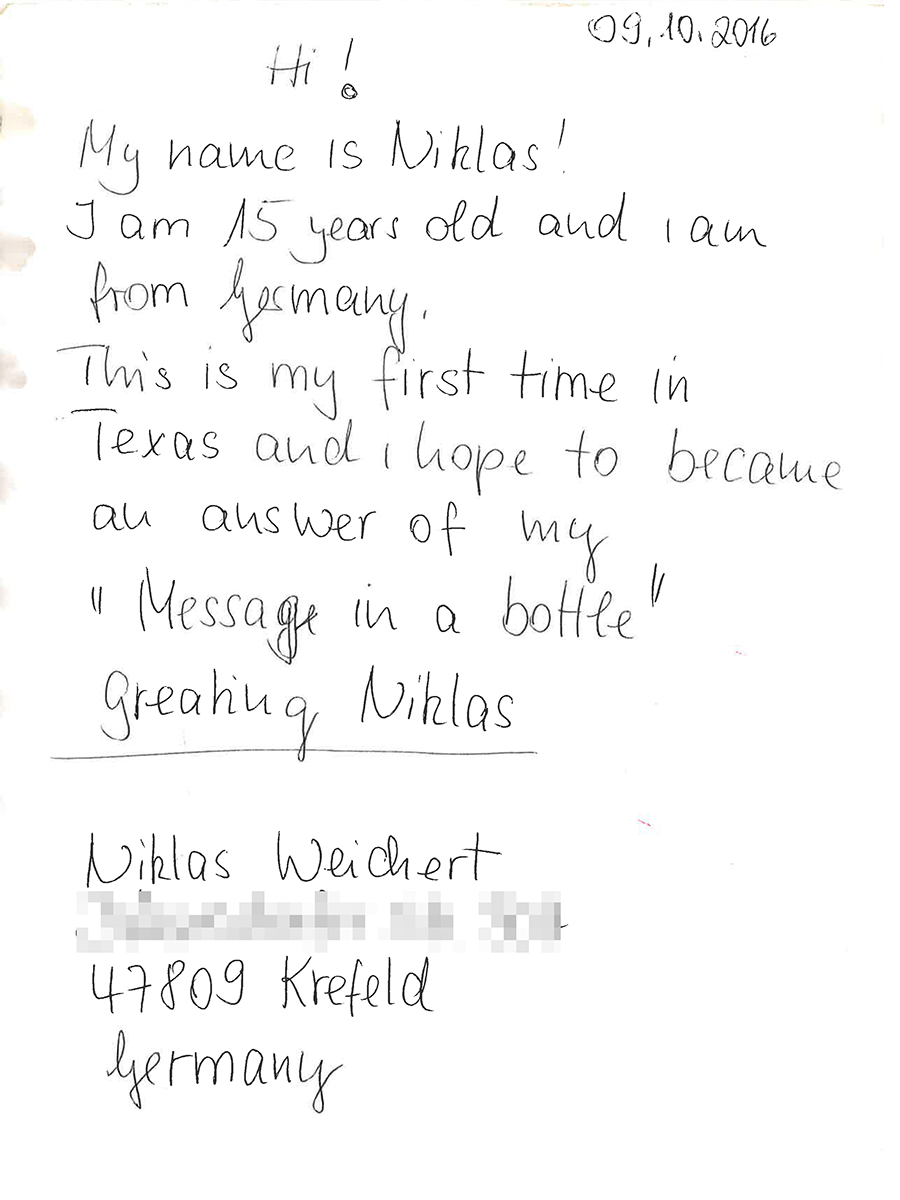 09.10.2016
Hi!
My name is Niklas!
I am 15 years old and i am
from Germany.
This is my first time in
Texas and i hope to became
an answer of my
"Message in a bottle"
greating Niklas
Niklas Weichert
47809 Krefeld
Germany